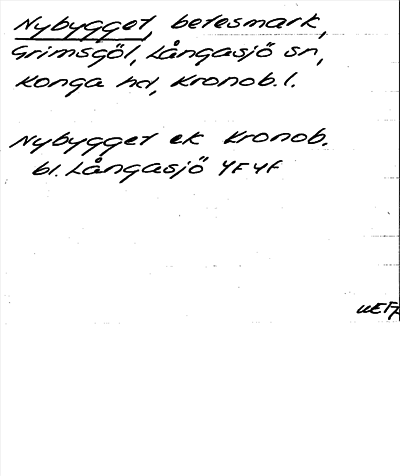 Nybygget, betesmark,
Grimsgöl, Långasjö sn,
Konga hd, Kronob. l.
Nybygget ek Kronob.
bl. Långasjö 4F4f